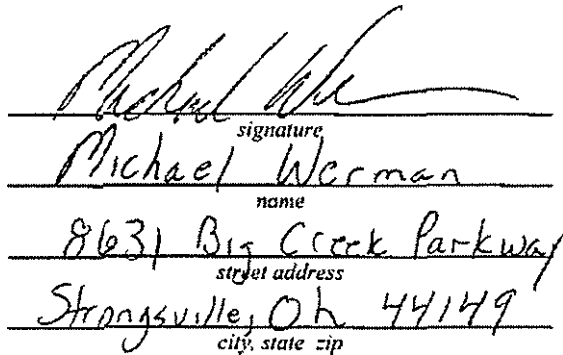 Michael We
signature
Michael Werman
name
8631 Big Creek Parkway
street address
Strongsville, Oh 44149
city, state zip